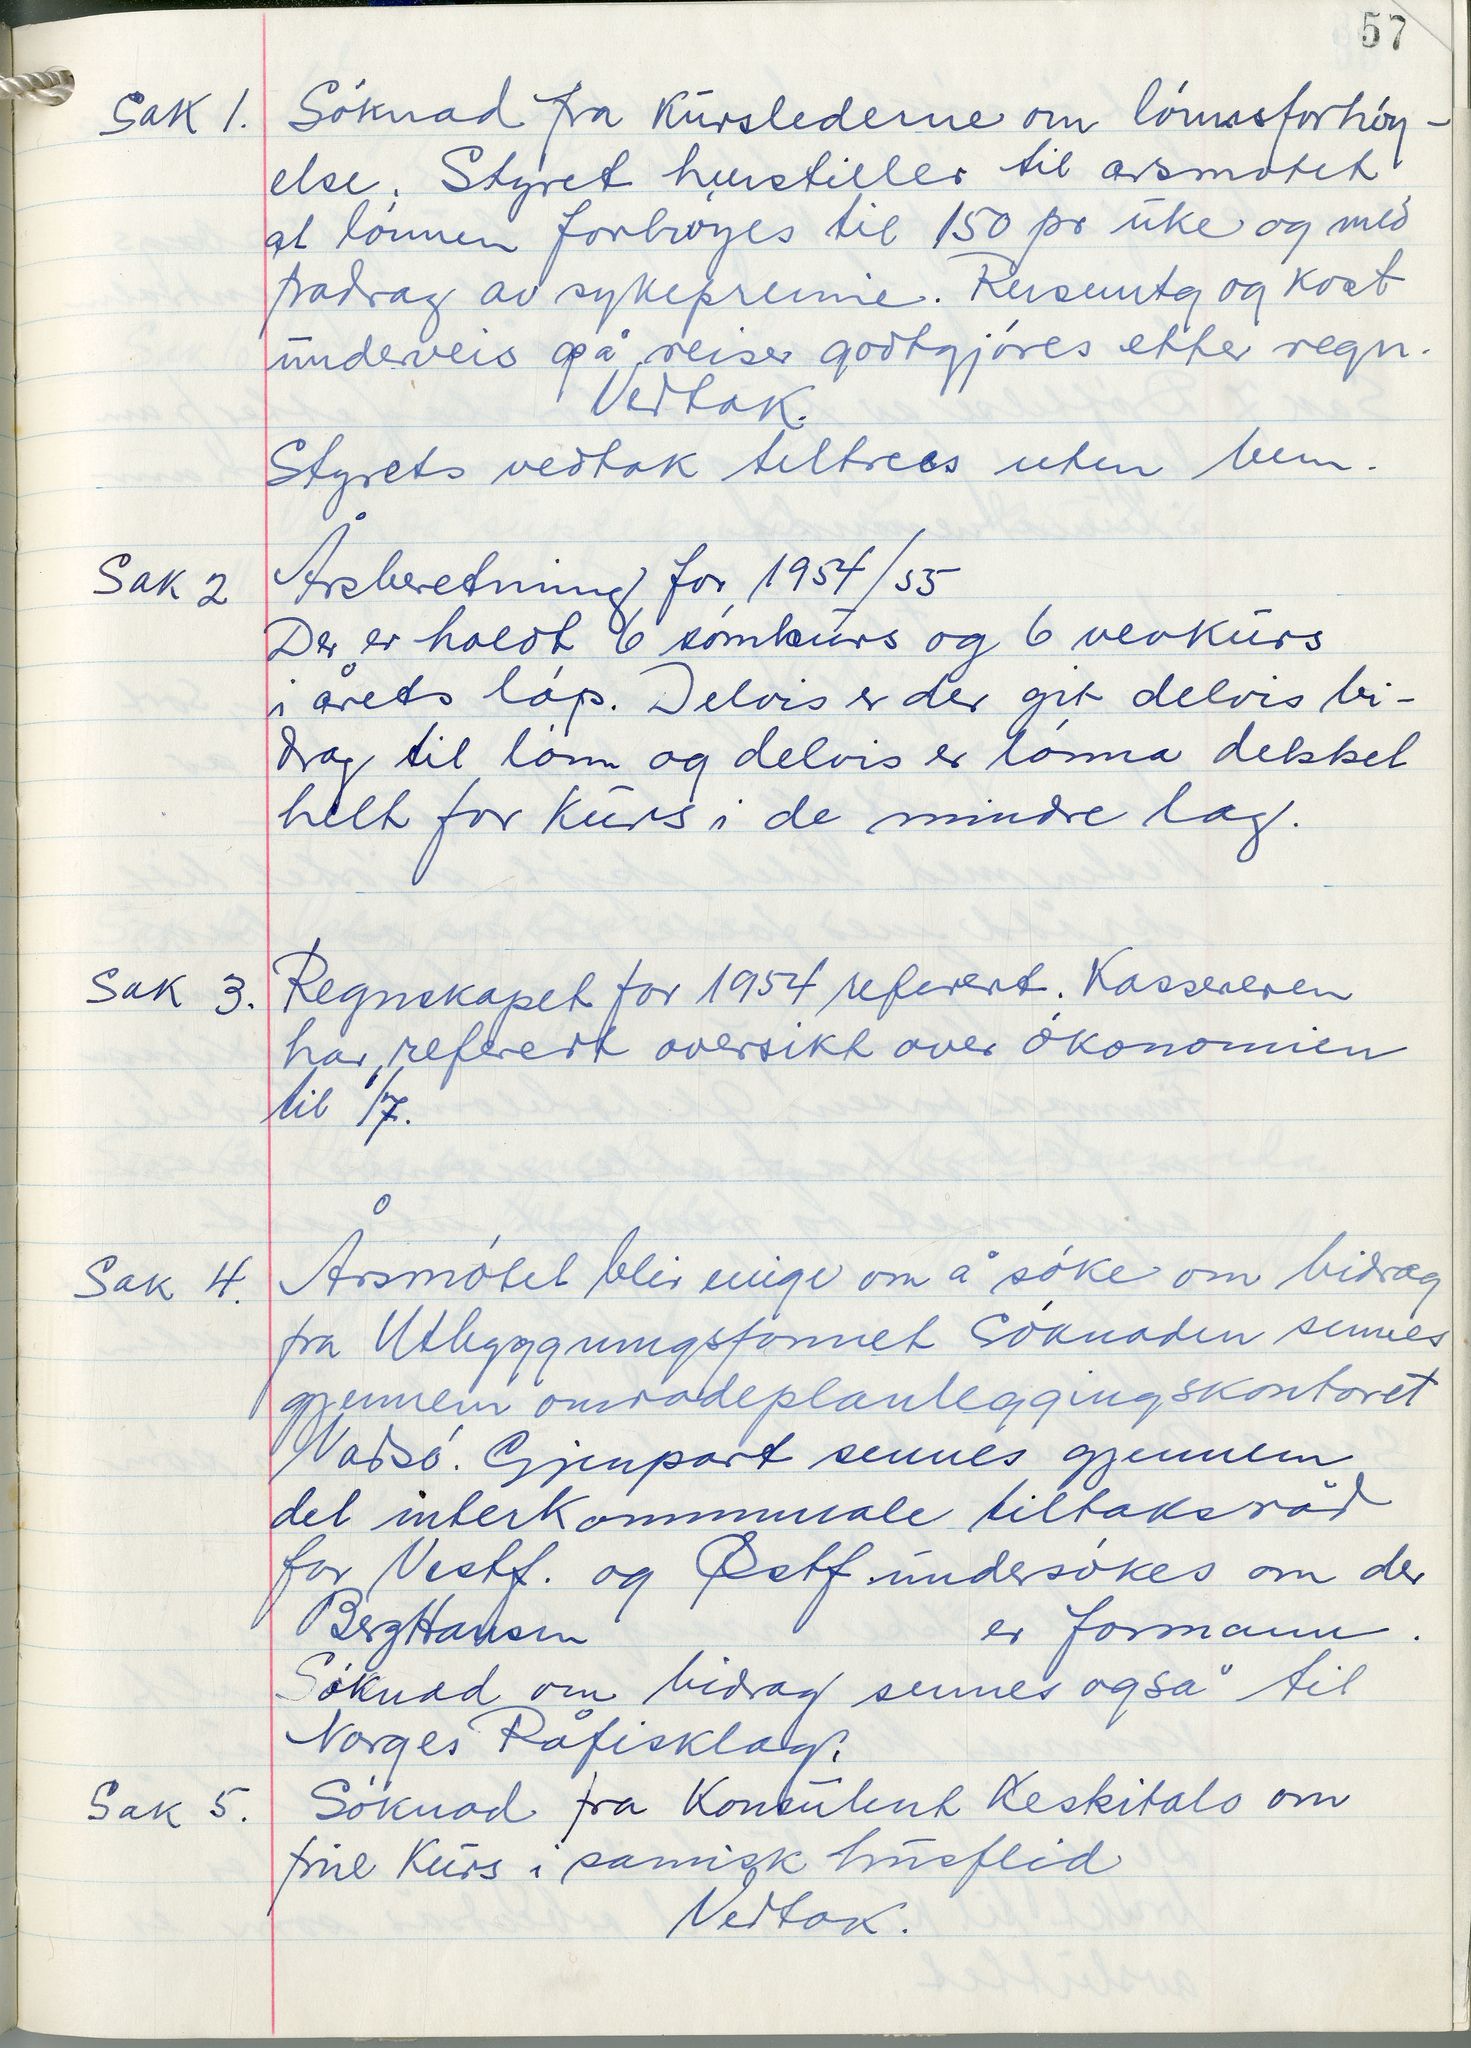 57
Sak 1. Söknad fra Kurslederne om lönnsforhöy-
else. Styret henstiller til arsmøtet
at lönnen forhøyes til 150 pr uke og med
fradrag av sykepremie. Reiseutg og kost
underveis på reiser godtgjöres etter regn.
Vedtak.
Styrets vedtak tiltrees uten bem.
Sak 2 Årsberetning for 1954/55
Der er holdt 6 sömkurs og 6 vevkurs
i årets löp. Delvis er der git delvis bi-
drag til lönn og delvis er lönna dekket
helt for kurs i de mindre lag.
Sak 3. Regnskapet for 1954 referert. Kassereren
har referert oversikt over ökonomien
til 1/7.
Sak 4. Årsmötet blir enige om å söke om bidrag
fra Utbyggingsfonnet Söknaden sennes
gjennem områdeplanleggingskontoret
Vadsö. Gjenpart sennes gjennem
det interkommunale tiltaksråd
for Vestf. og Østf. undersökes om der
Berg Hansen er formann.
Söknad om bidrag sennes også til
Norges Råfisklag.
Sak 5. Söknad fra Konsulent Keskitalo om
frie kurs i samisk husflid
Vedtak.